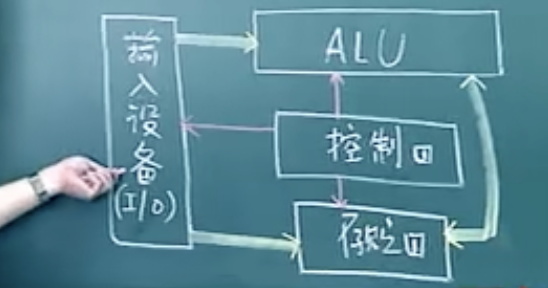 输入设备
(I/O)
ALU
控制口
存贮口